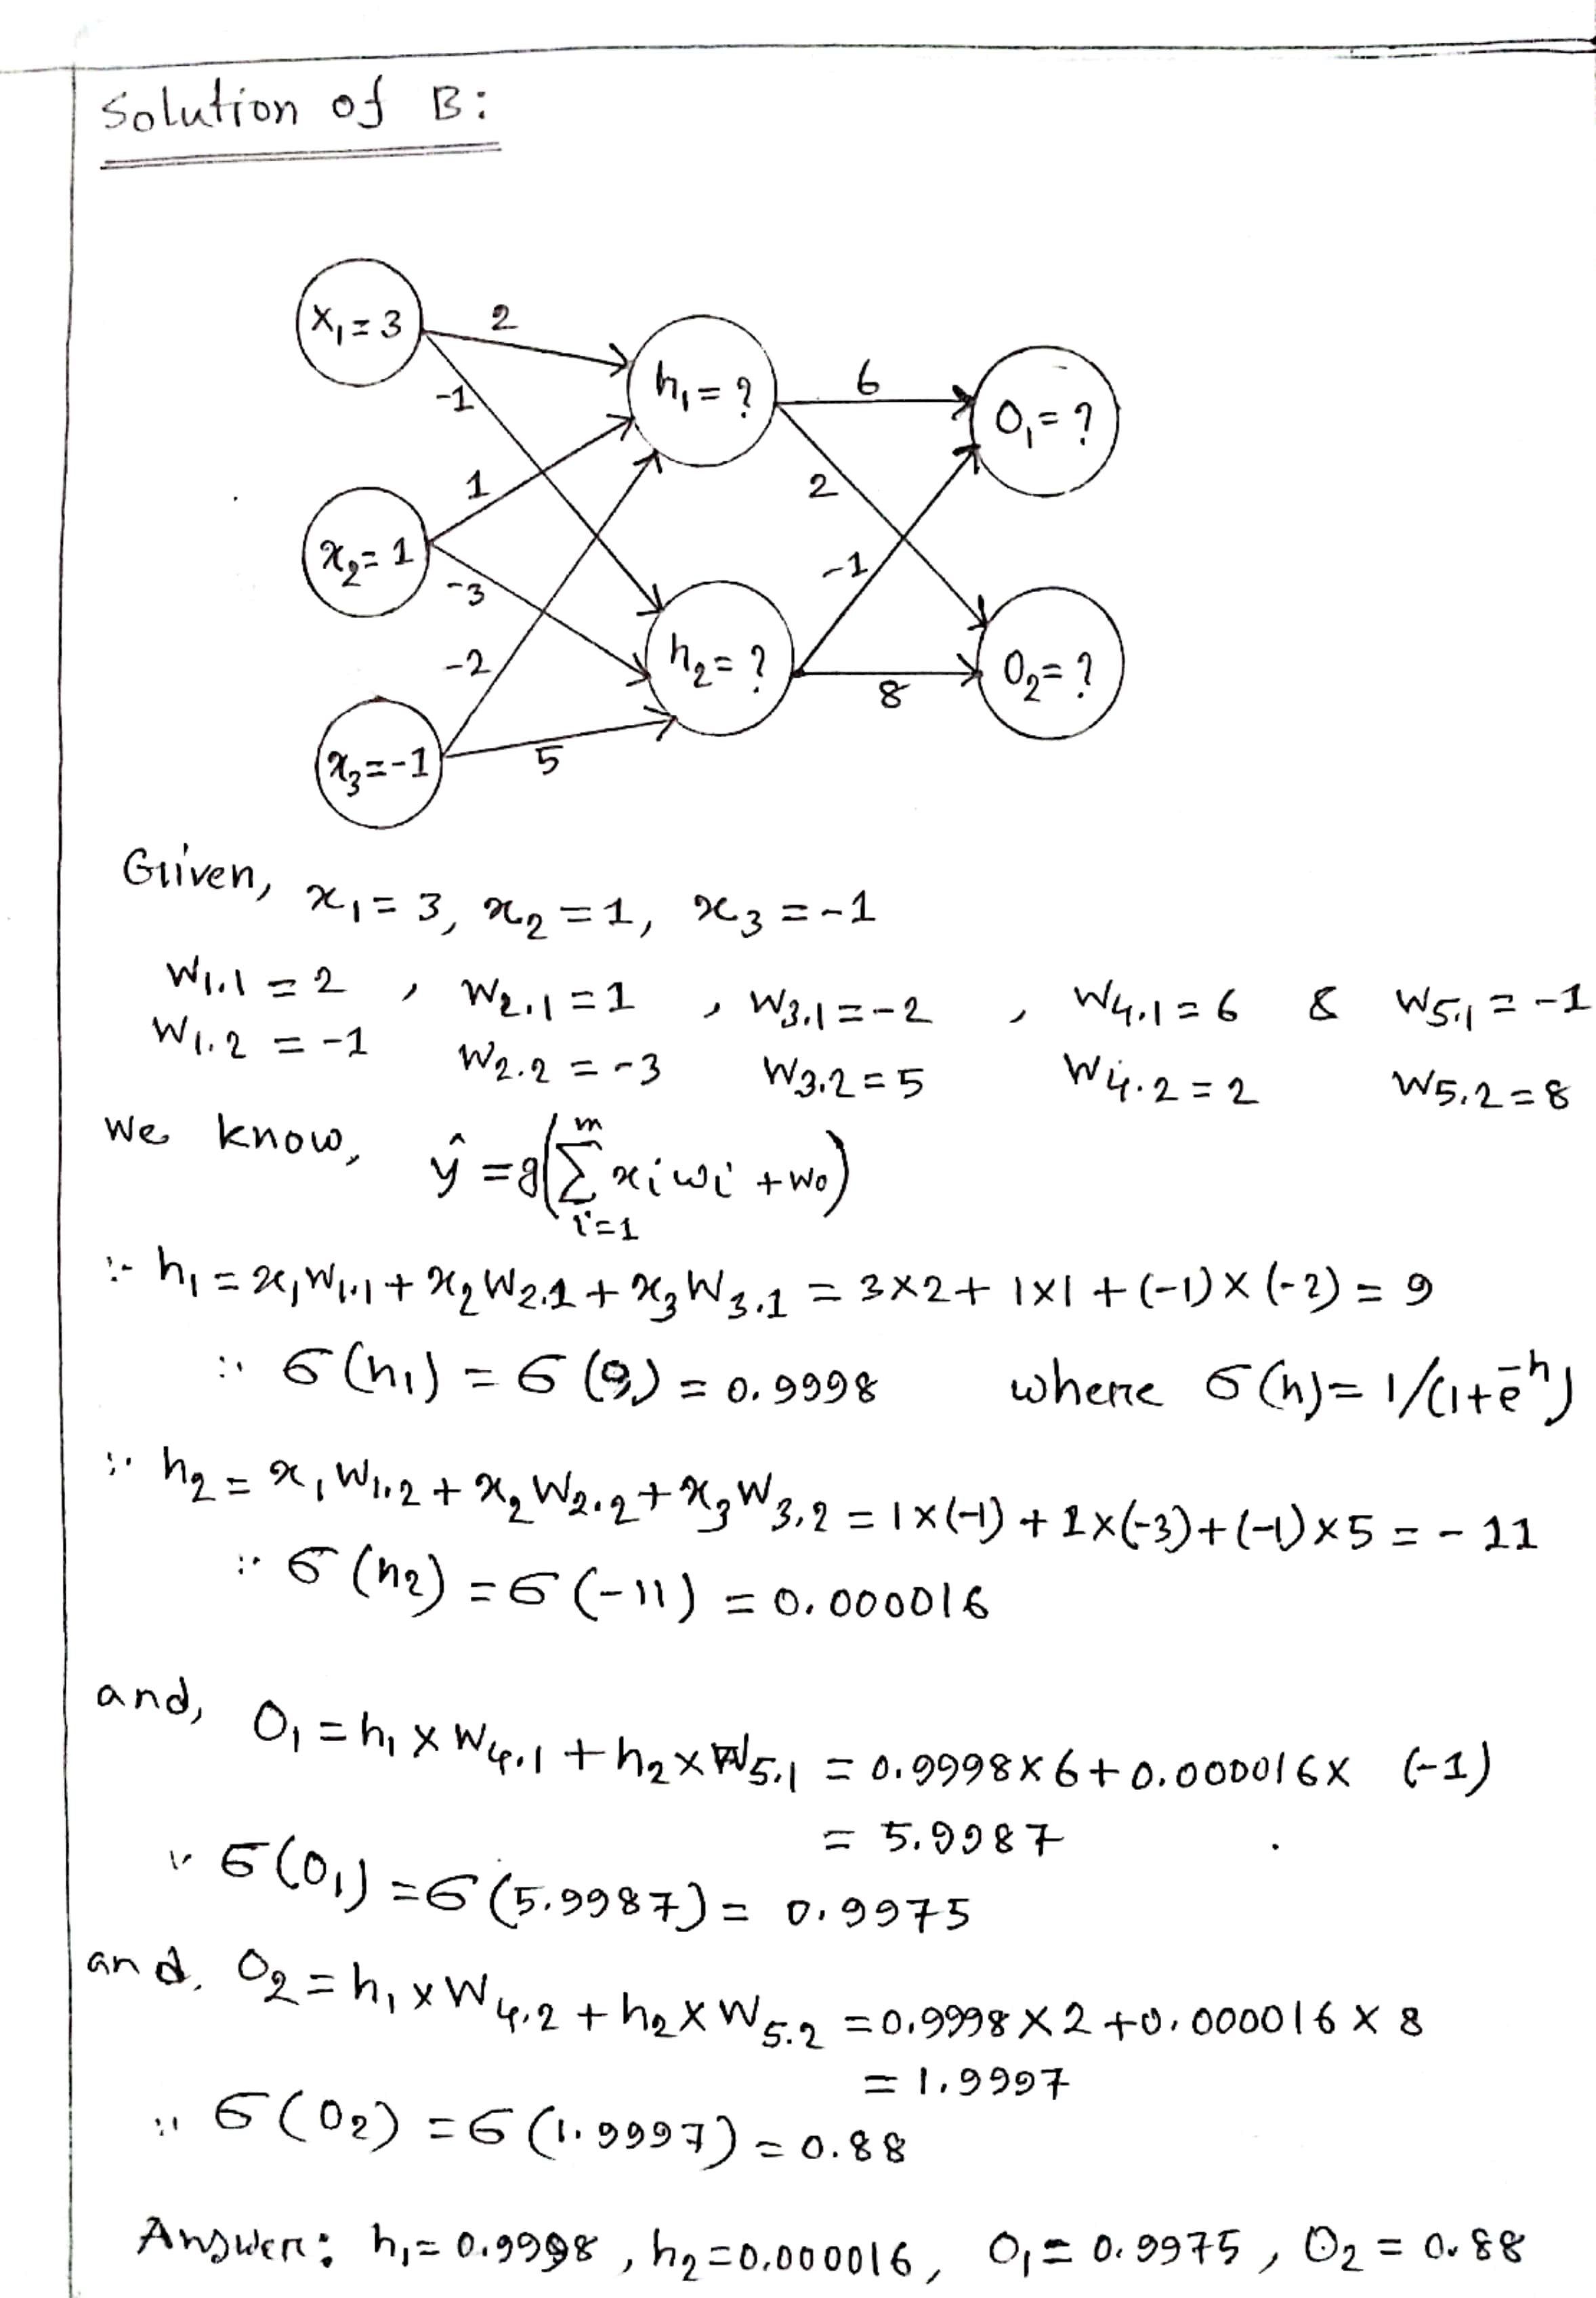 Solution of B:
X₁=3
2
-1
h₁=?
6
O₁=?
1
2
x₂=1
-3
-1
-2
h₂=?
8
O₂=?
x₃=-1
5
Given, x₁=3, x₂=1, x₃=-1
W1.1=2 , W2.1=1 , W3.1=-2 , W4.1=6 & W5.1=-1
W1.2=-1 W2.2=-3 W3.2=5 W4.2=2 W5.2=8
We know, ŷ=g(∑ᵢ₌₁ᵐ xiwi+w₀)
∴ h₁=x₁W1.1+x₂W2.1+x₃W3.1=3×2+1×1+(-1)×(-2)=9
∴ σ(h₁)=σ(9)=0.9998 where σ(h)=1/(1+e⁻ʰ)
∴ h₂=x₁W1.2+x₂W2.2+x₃W3.2=1×(-1)+1×(-3)+(-1)×5=-11
∴ σ(h₂)=σ(-11)=0.000016
and, O₁=h₁×W4.1+h₂×W5.1=0.9998×6+0.000016×(-1)
=5.9987
∴ σ(O₁)=σ(5.9987)=0.9975
and, O₂=h₁×W4.2+h₂×W5.2=0.9998×2+0.000016×8
=1.9997
∴ σ(O₂)=σ(1.9997)=0.88
Answer: h₁=0.9998, h₂=0.000016, O₁=0.9975, O₂=0.88